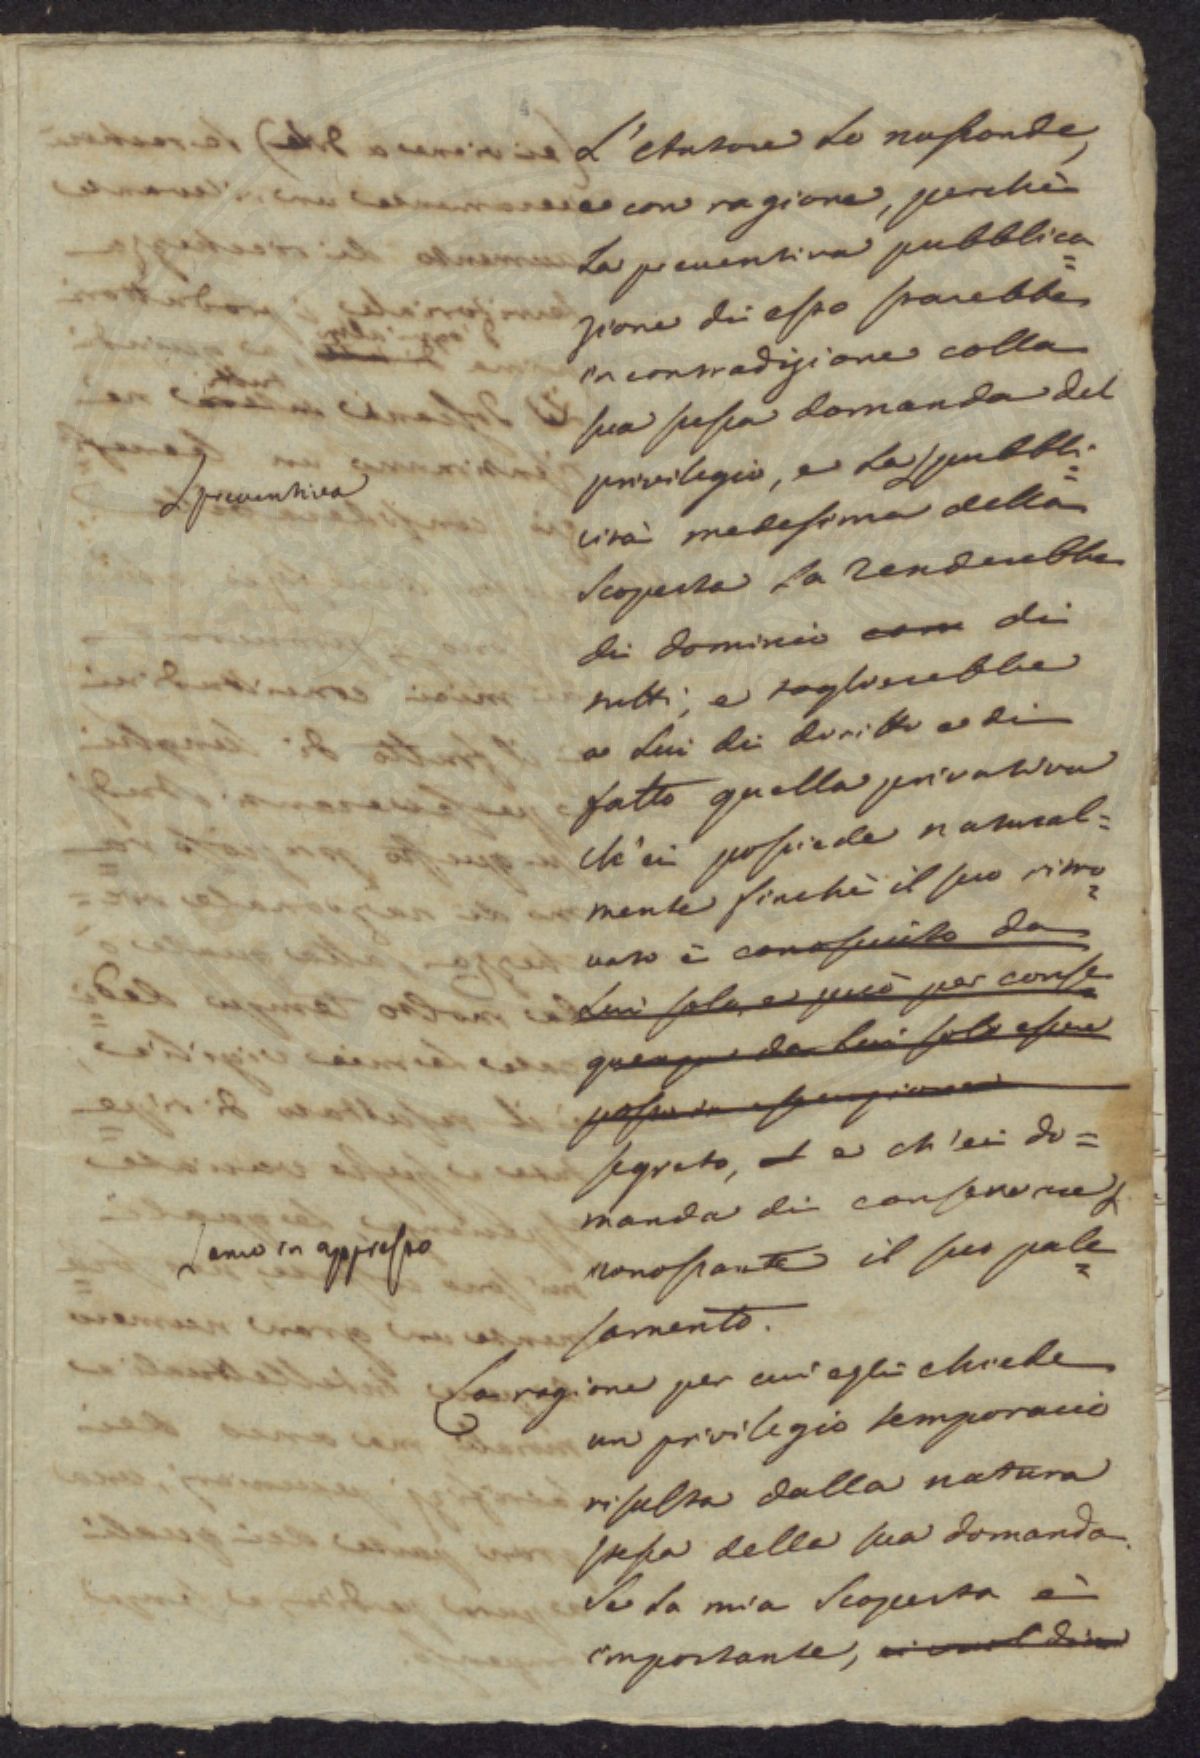 L'Autore lo nasconde,
e con ragione, perchè
la preventiva pubblica=
zione di esso sarebbe
in contradizione colla
sua stessa domanda del
privilegio, e la pubbli=
preventiva
cità medesima della
scoperta la renderebbe
di dominio com di
tutti, e toglierebbe
a lui di diritto e di
fatto quella privativa
ch'ei possiede natural=
mente finchè il suo ritro=
vato è conosciuto da
lui solo, e può per conse=
guenza da lui solo essere
posto in esecuzione
segreto, e ch'ei do=
manda di conservare
anco in appresso
nonostante il suo pale=
samento.
La ragione per cui egli chiede
un privilegio temporario
risulta dalla natura
stessa della sua domanda.
Se la mia scoperta è
importante,